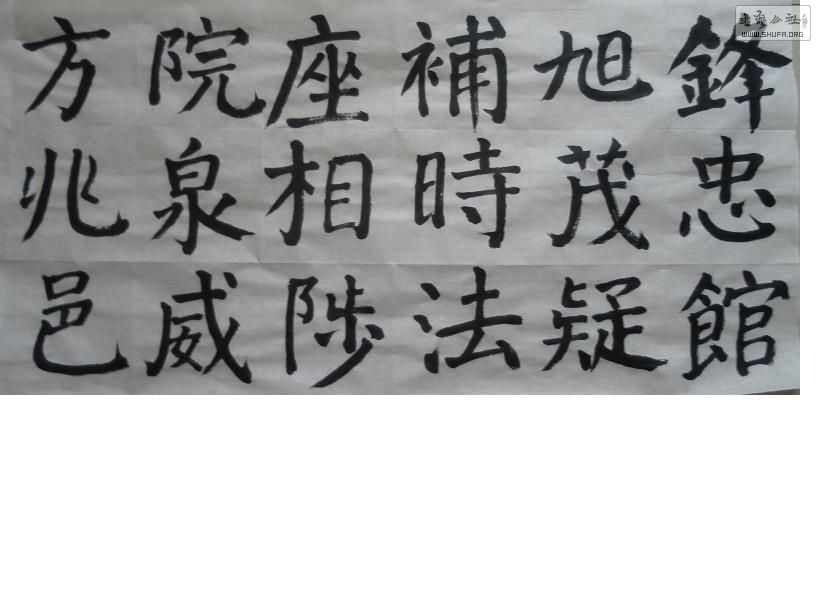 鋒忠館
旭茂疑
補時法
座相陟
院泉威
方兆邑
WWW.SHUFA.ORG